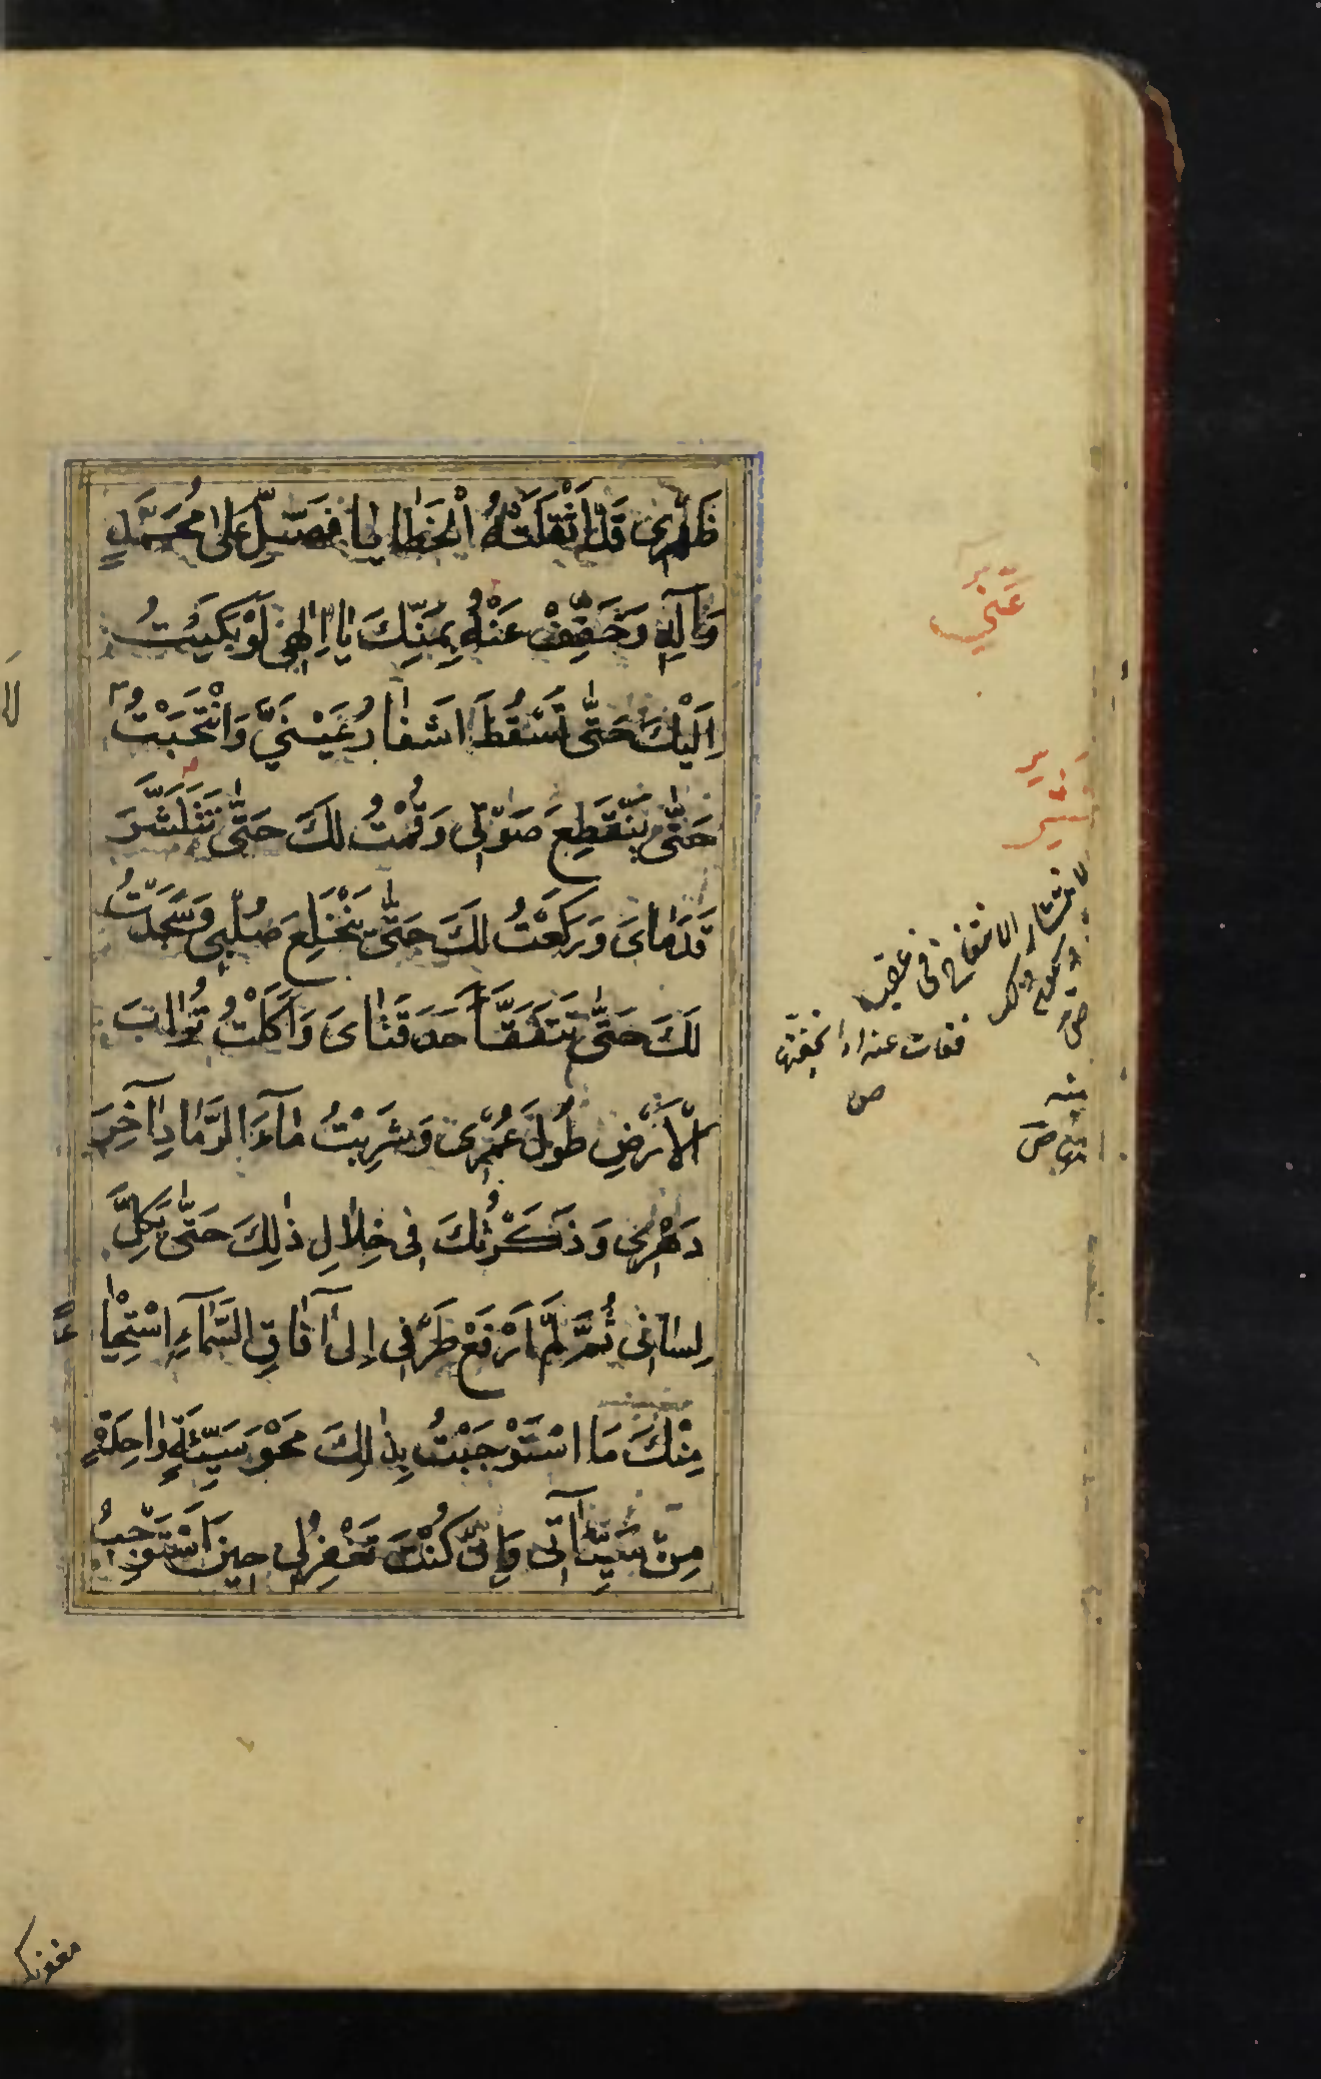 ظَهْرِى قَدْ اَثْقَلَتْهُ الْخَطَايَا فَصَلِّ عَلَى مُحَمَّدٍ
وَآلِهِ وَخَفِّفْ عَنْهُ بِمَنِّكَ يَا اِلٰهِى لَوْ بَكَيْتُ
اِلَيْكَ حَتَّى تَسْقُطَ اَشْفَارُ عَيْنَىَّ وَانْتَحَبْتُ
حَتَّى يَنْقَطِعَ صَوْتِى وَقُمْتُ لَكَ حَتَّى تَتَنَشَّرَ
قَدَمَاىَ وَرَكَعْتُ لَكَ حَتَّى يَنْخَلِعَ صُلْبِى وَسَجَدْتُ
لَكَ حَتَّى تَتَفَقَّأَ حَدَقَتَاىَ وَاَكَلْتُ تُرَابَ
الْاَرْضِ طُولَ عُمْرِى وَشَرِبْتُ مَآءَ الرَّمَادِ آخِرَ
دَهْرِى وَذَكَرْتُكَ فِى خِلَالِ ذٰلِكَ حَتَّى يَكِلَّ
لِسَانِى ثُمَّ لَمْ اَرْفَعْ طَرْفِى اِلَى آفَاقِ السَّمَآءِ اسْتِحْيَا
ءً
مِنْكَ مَا اسْتَوْجَبْتُ بِذٰلِكَ مَحْوَ سَيِّئَةٍ وَاحِدَةٍ
مِنْ سَيِّئَاتِى وَاِنْ كُنْتَ تَغْفِرُ لِى حِينَ اَسْتَوْجِبُ
عَنِّي
الانتشار الانتفاخ فى عصب
ص
مغفرتك